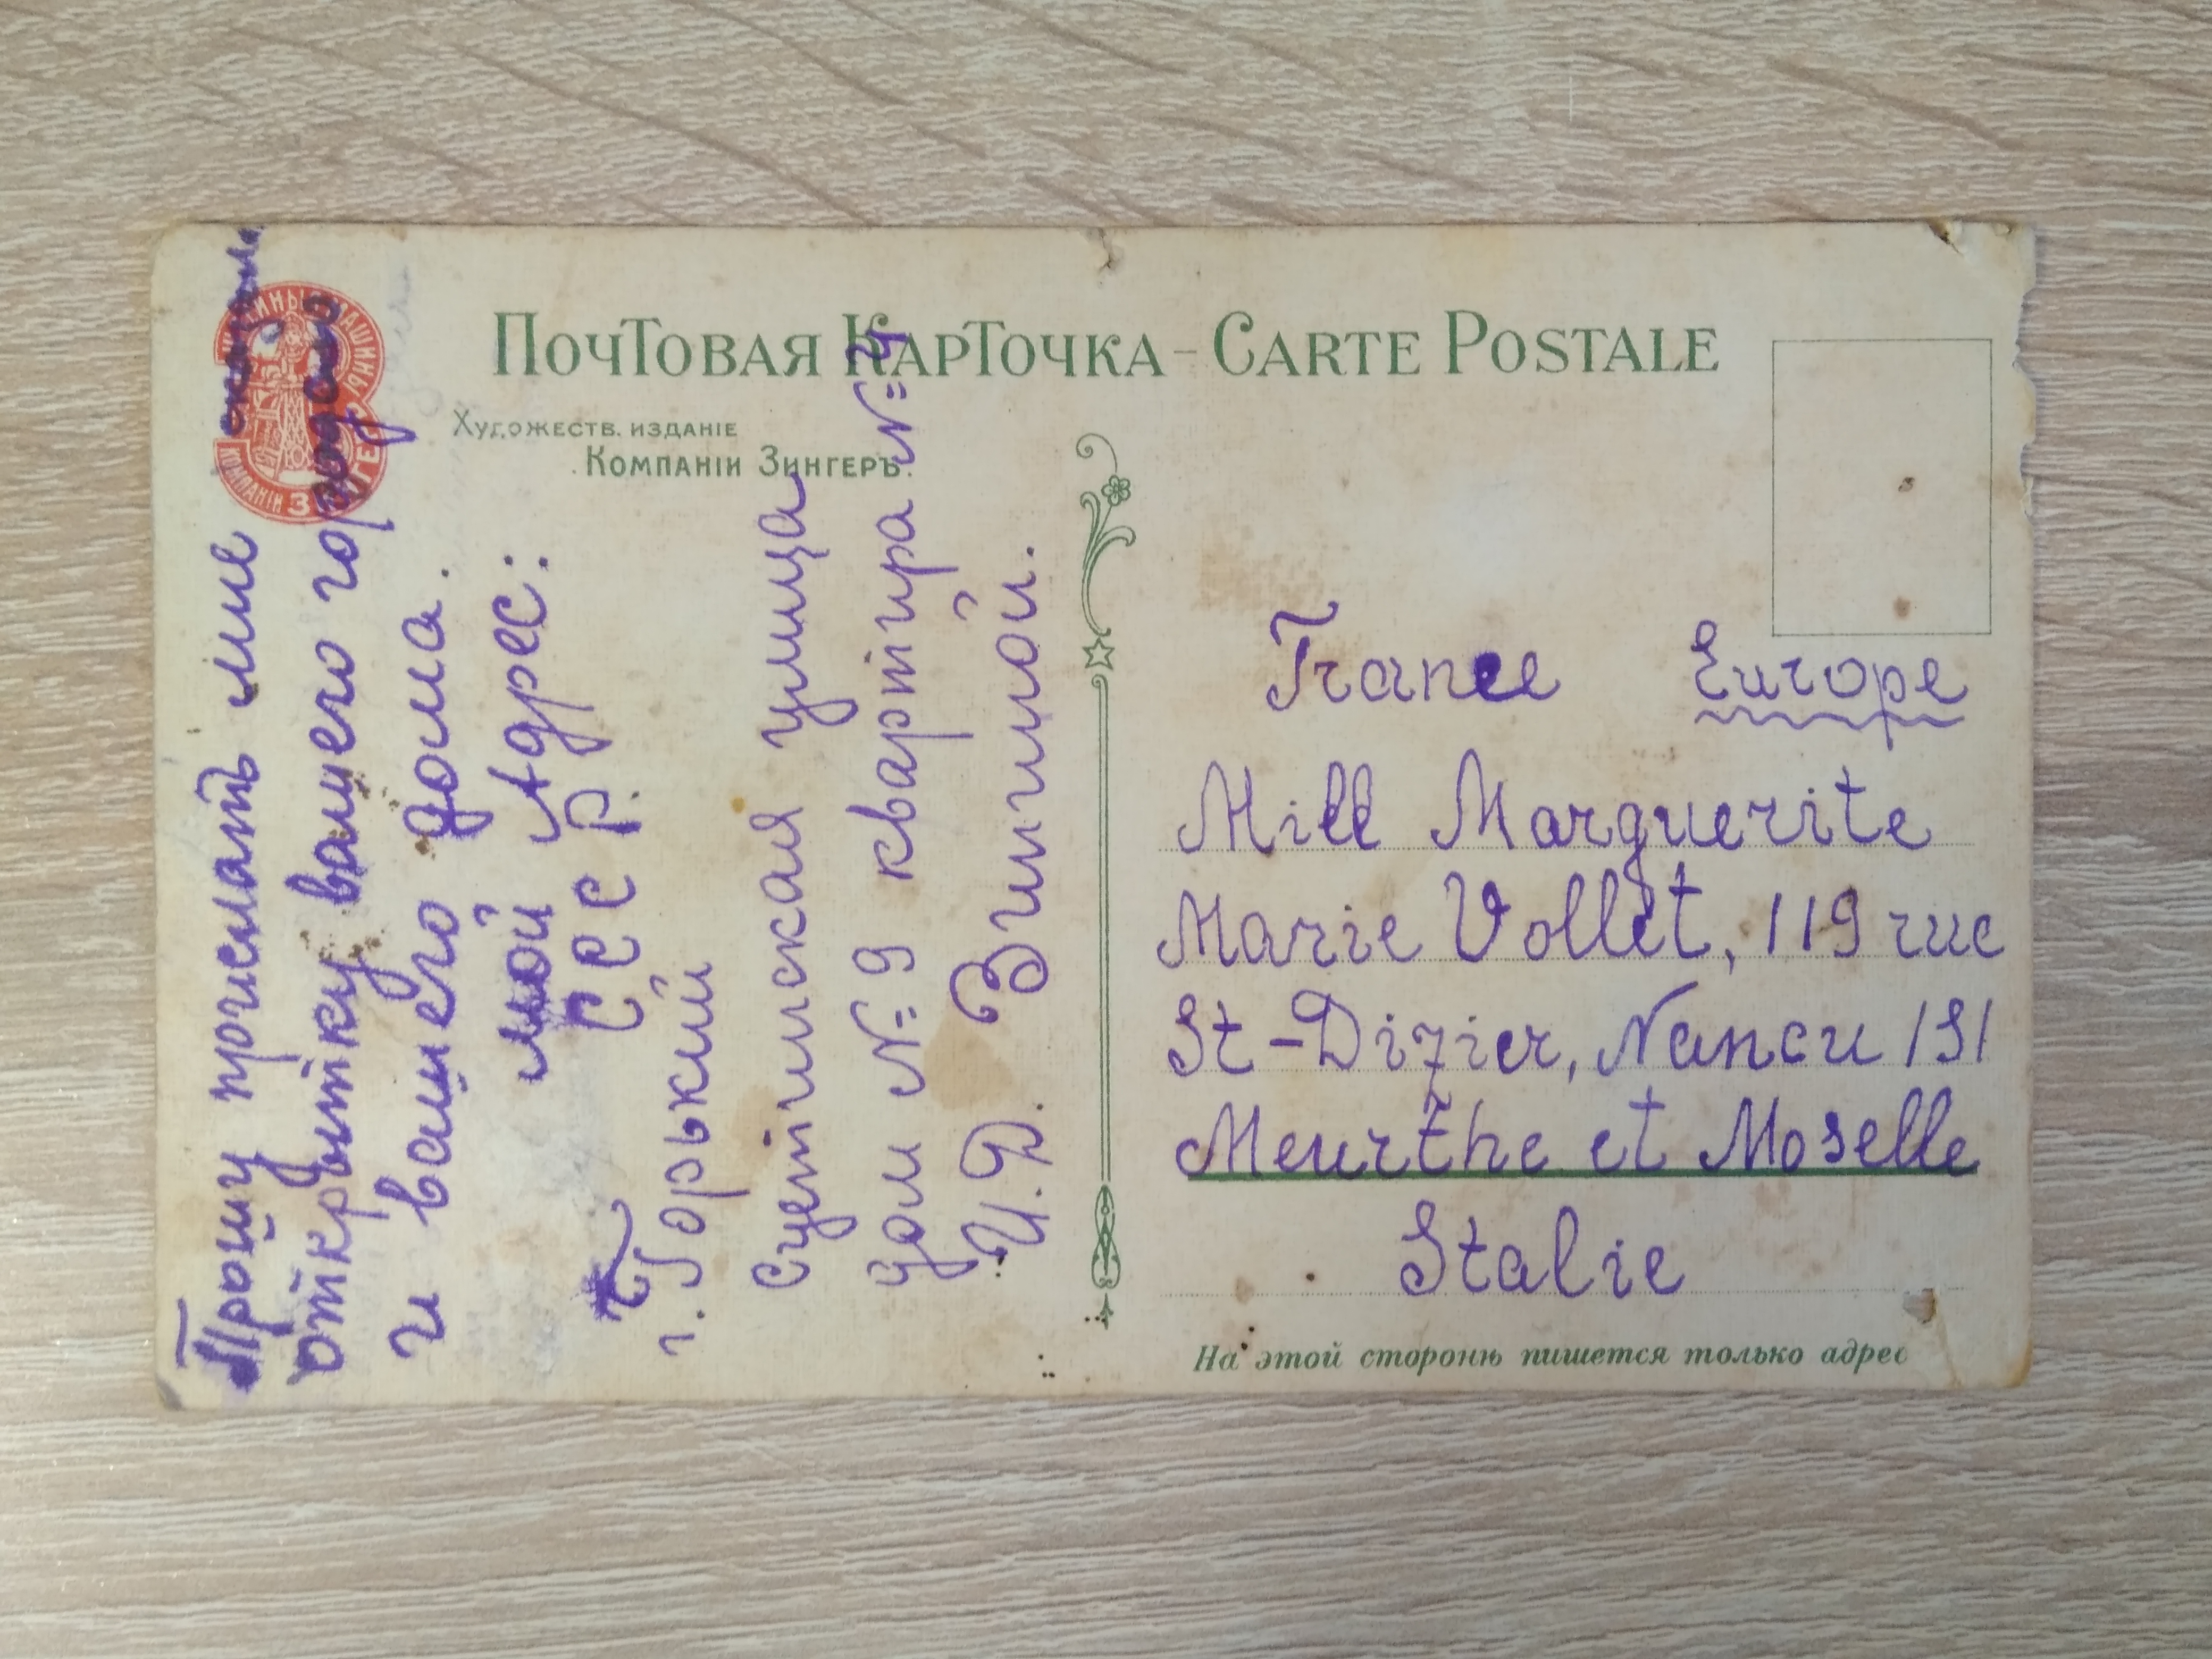 ПОЧТОВАЯ КАРТОЧКА - CARTE POSTALE
ХУДОЖЕСТВ. ИЗДАНІЕ
КОМПАНІИ ЗИНГЕРЪ.
КОМПАНІИ ЗИНГЕРЪ
Прошу прислать мне
открытку вашего города
и вашего дома.
мой Адрес:
С С С Р.
г. Горький
Сцетинская улица
дом № 9 квартира № 4
И. Д. Зининой.
France Europe
Mill Marguerite
Marie Vollet, 119 rue
St-Dizier, Nancu 151
Meurthe et Moselle
Stalie
На этой сторонѣ пишется только адрес